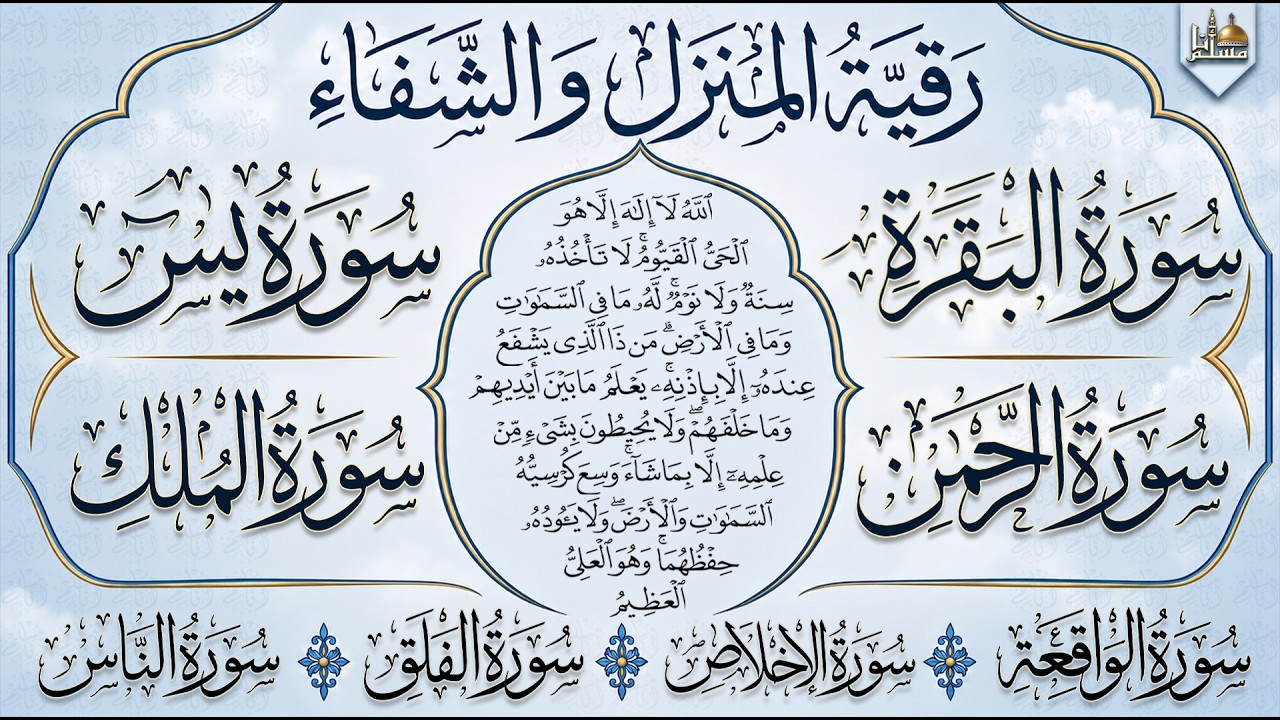 رقية المنزل والشفاء
سورة البقرة
سورة يس
سورة الرحمن
سورة الملك
ٱللَّهُ لَآ إِلَٰهَ إِلَّا هُوَ
ٱلْحَىُّ ٱلْقَيُّومُ ۚ لَا تَأْخُذُهُۥ
سِنَةٌ وَلَا نَوْمٌ ۚ لَّهُۥ مَا فِى ٱلسَّمَٰوَٰتِ
وَمَا فِى ٱلْأَرْضِ ۗ مَن ذَا ٱلَّذِى يَشْفَعُ
عِندَهُۥٓ إِلَّا بِإِذْنِهِۦ ۚ يَعْلَمُ مَا بَيْنَ أَيْدِيهِمْ
وَمَا خَلْفَهُمْ ۖ وَلَا يُحِيطُونَ بِشَىْءٍ مِّنْ
عِلْمِهِۦٓ إِلَّا بِمَا شَآءَ ۚ وَسِعَ كُرْسِيُّهُ
ٱلسَّمَٰوَٰتِ وَٱلْأَرْضَ ۖ وَلَا يَـُٔودُهُۥ
حِفْظُهُمَا ۚ وَهُوَ ٱلْعَلِىُّ
ٱلْعَظِيمُ
سورة الواقعة
سورة الإخلاص
سورة الفلق
سورة الناس